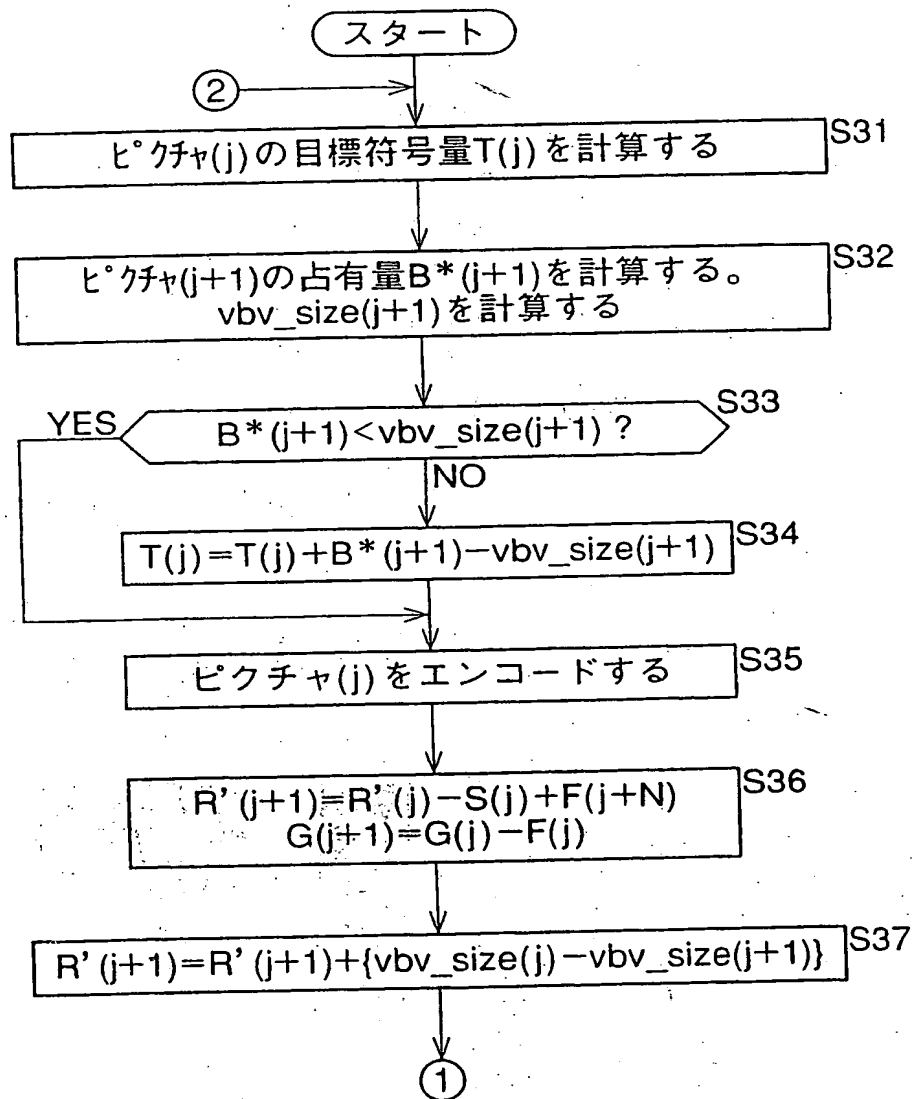 スタート
②
ピクチャ(j)の目標符号量T(j)を計算する
S31
ピクチャ(j+1)の占有量B*(j+1)を計算する。
vbv_size(j+1)を計算する
S32
B*(j+1)<vbv_size(j+1) ?
S33
YES
NO
T(j)=T(j)+B*(j+1)-vbv_size(j+1)
S34
ピクチャ(j)をエンコードする
S35
R'(j+1)=R'(j)-S(j)+F(j+N)
G(j+1)=G(j)-F(j)
S36
R'(j+1)=R'(j+1)+{vbv_size(j)-vbv_size(j+1)}
S37
①